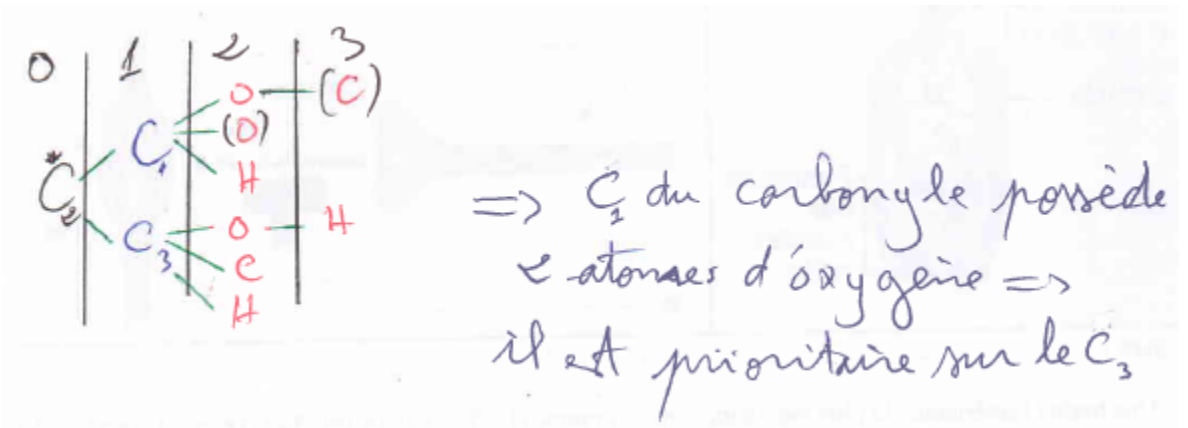 0 1 2 3
O (C)
C₁ (O)
H
*C₂
C₃ O H
C
H
=> C₁ du carbonyle possède
2 atomes d'oxygène =>
il est prioritaire sur le C₃